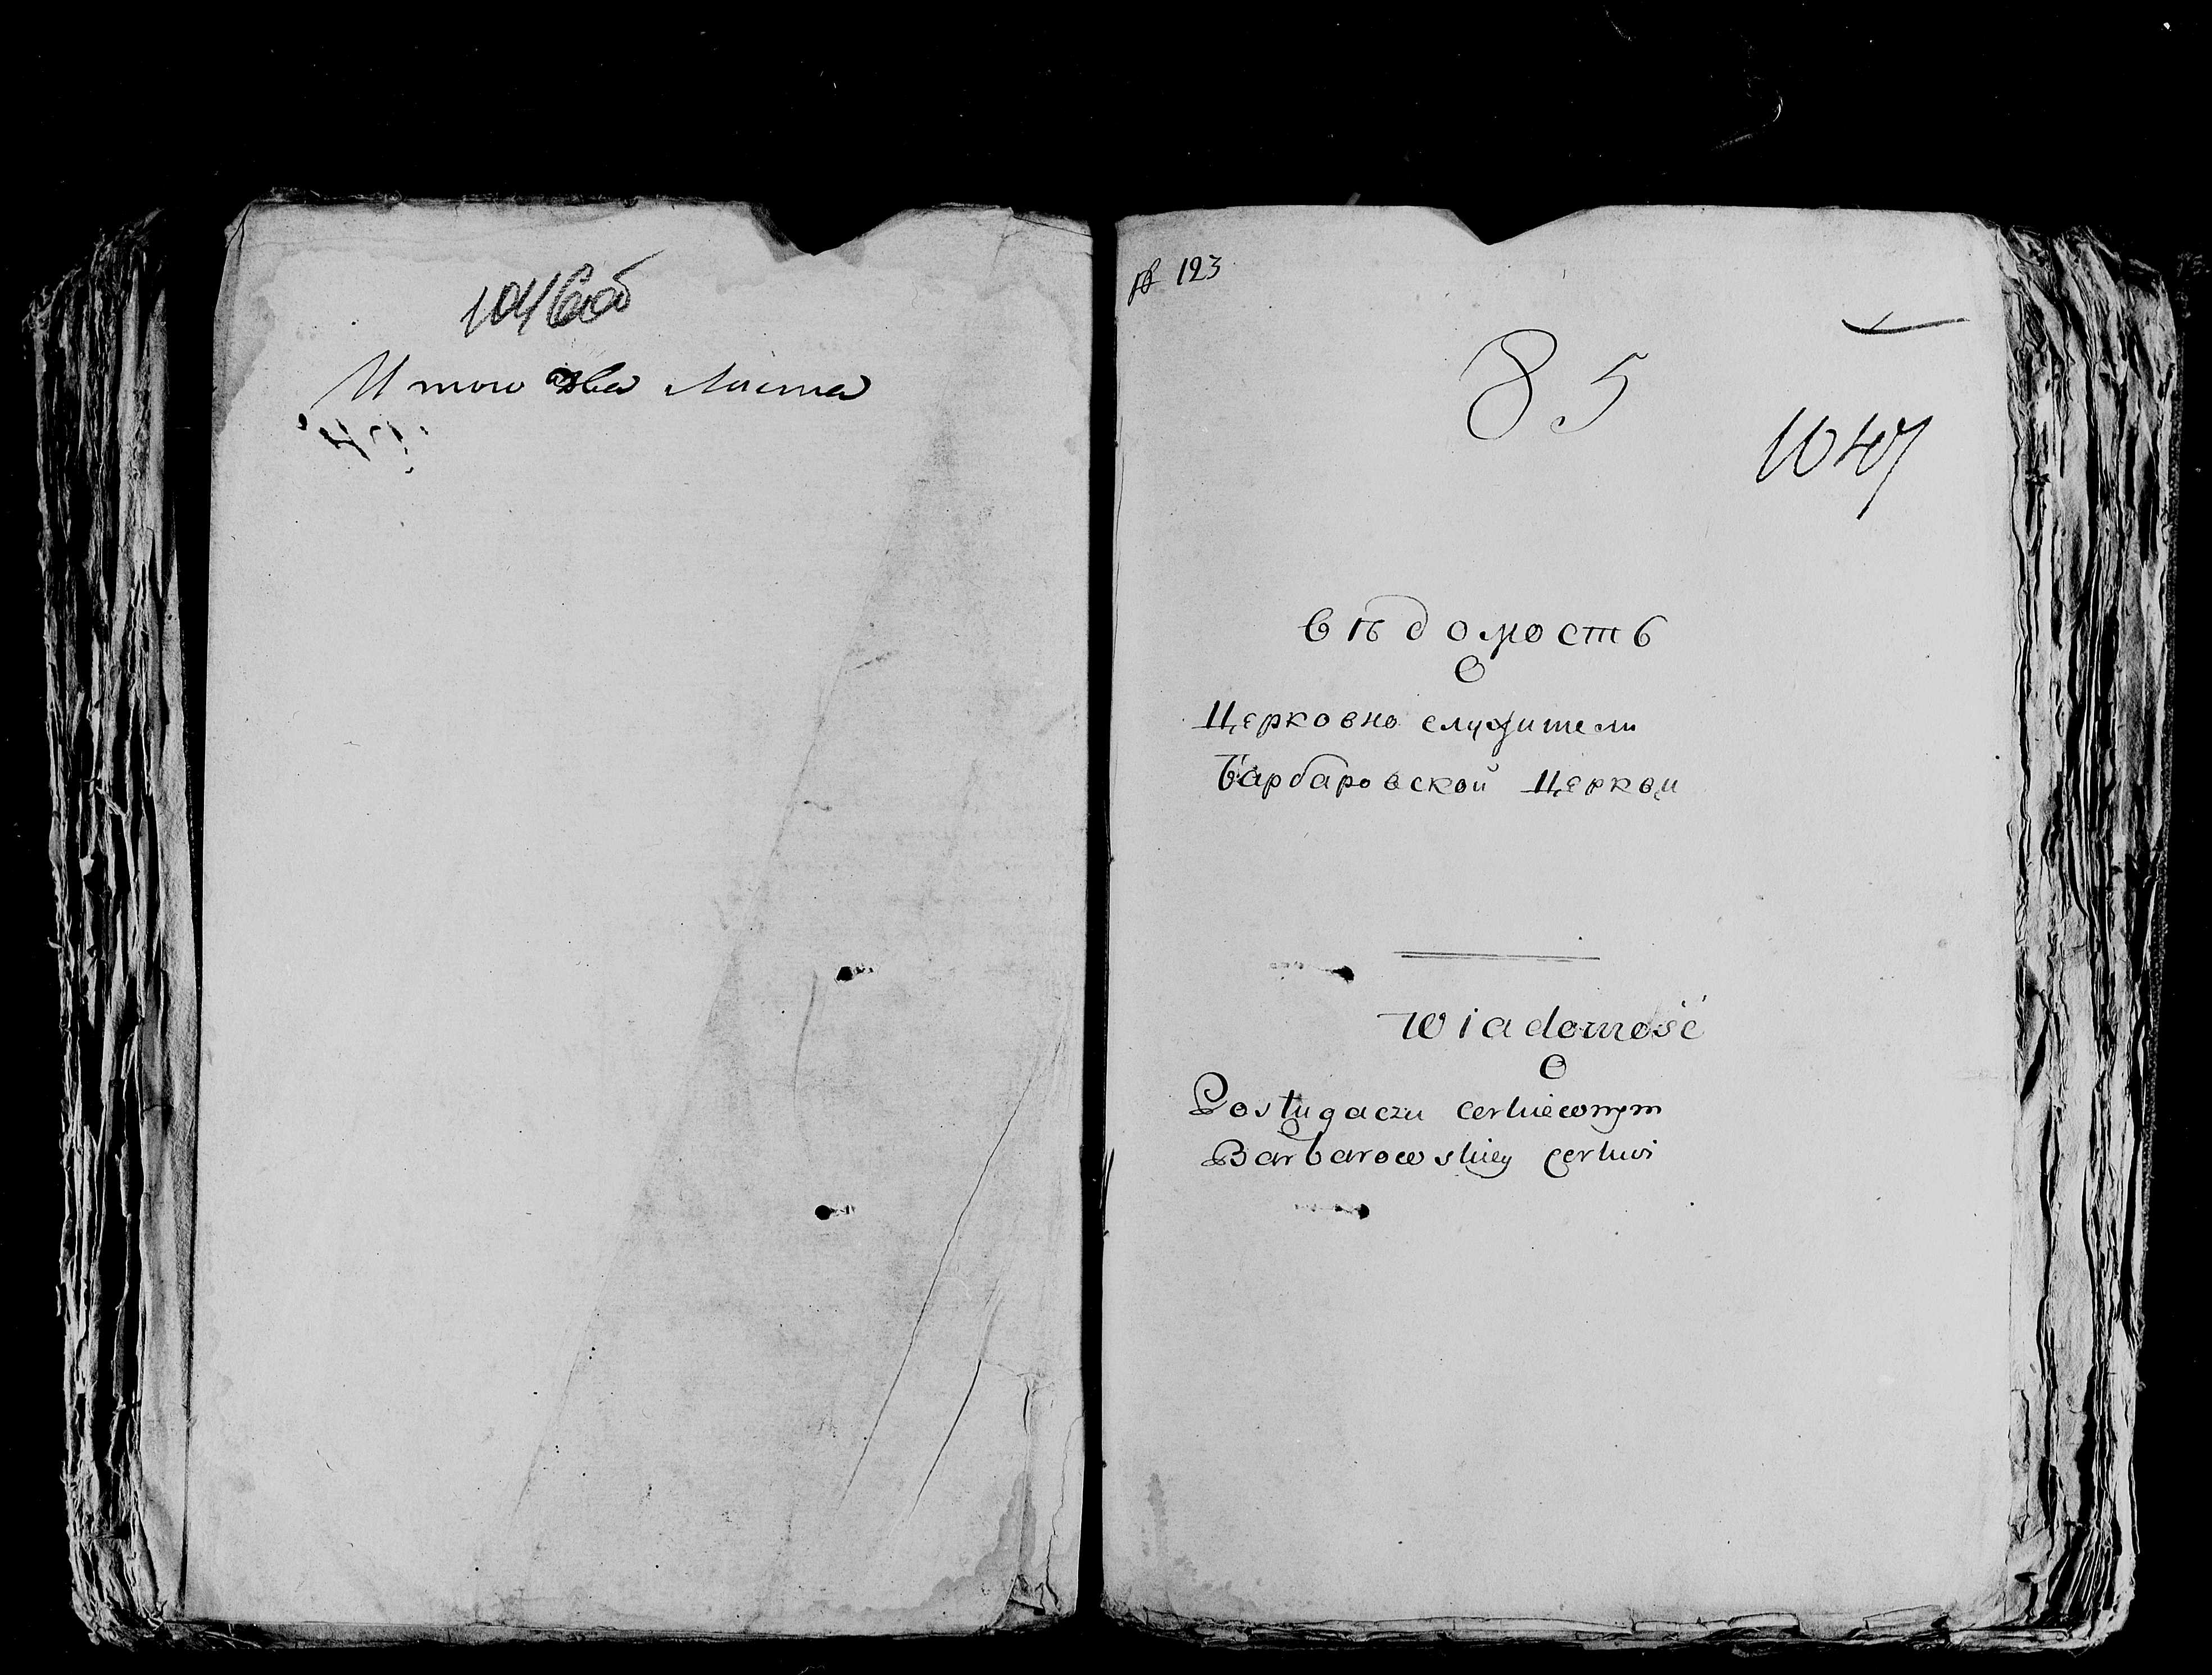 1046об
Итого два листа
№ 123
85
1047
вѣдомость
О
Церковно служители
Барбаровской Церкви
Wiadomość
O
Posługaczu cerkiewnym
Barbarowskiey cerkwi